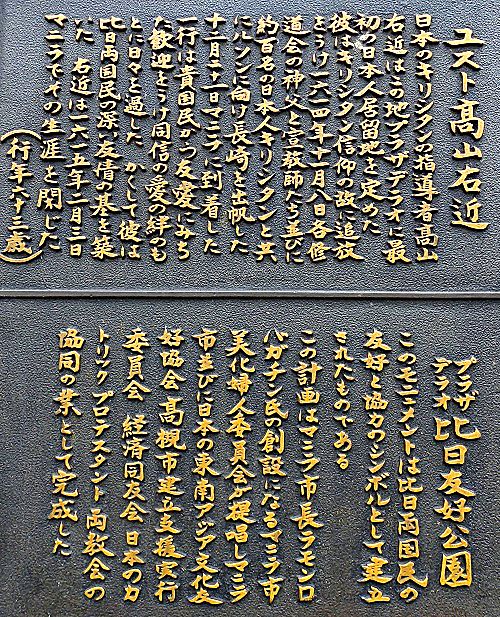 ユスト高山右近
日本のキリシタンの指導者高山
右近はこの地プラザデラオに最
初の日本人居留地を定めた
彼はキリシタン信仰の故に追放
をうけ一六一四年十一月八日各修
道会の神父と宣教師たち並びに
約百名の日本人キリシタンと共
にルソンに向け長崎を出帆した
十二月二十一日マニラに到着した
一行は貴国民から友愛にみち
た歓迎をうけ同信の愛の絆のも
とに日々を過した かくして彼は
比日両国民の深い友情の基を築
いた 右近は一六一五年二月三日
マニラでその生涯を閉じた
(行年六十三歳)
プラザ
デラオ
比日友好公園
このモニュメントは比日両国民の
友好と協力のシンボルとして建立
されたものである
この計画はマニラ市長ラモンロ
バガチン氏の創設になるマニラ市
美化婦人委員会が提唱しマニラ
市並びに日本の東南アジア文化友
好協会 高槻市建立支援実行
委員会 経済同友会 日本のカ
トリック プロテスタント両教会の
協同の業として完成した